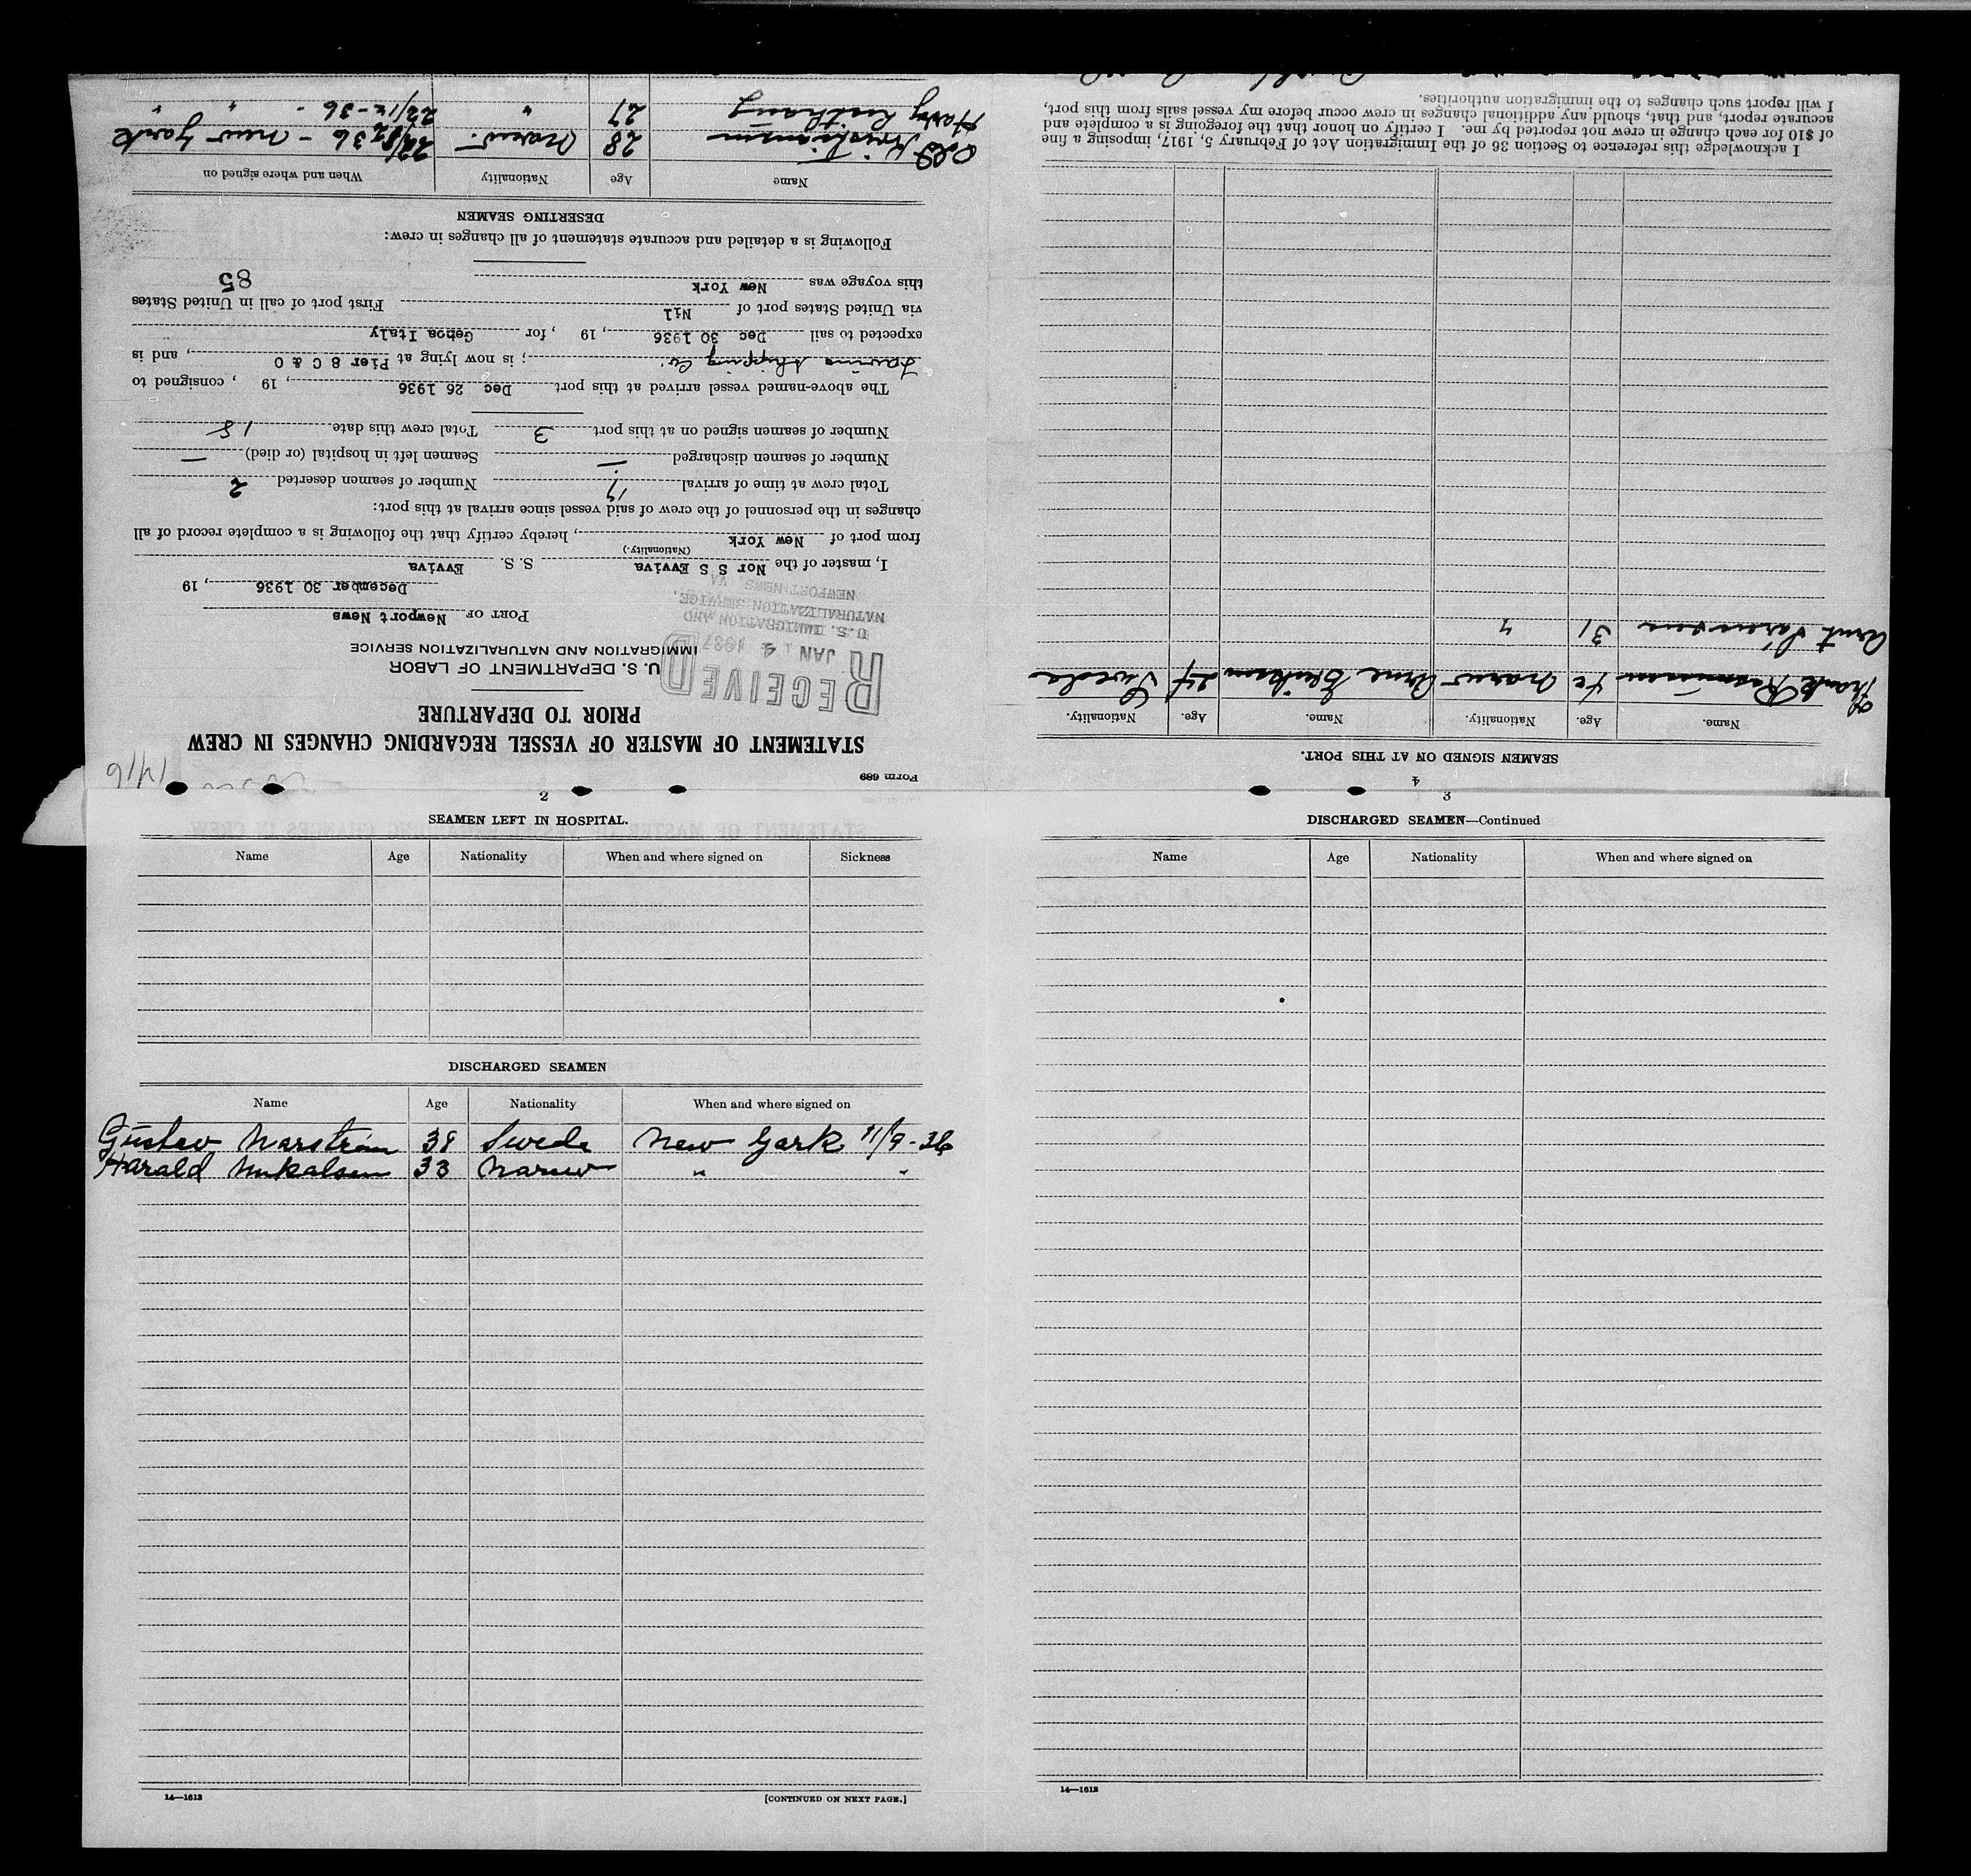 Form 689
1416
STATEMENT OF MASTER OF VESSEL REGARDING CHANGES IN CREW
PRIOR TO DEPARTURE
U. S. DEPARTMENT OF LABOR
IMMIGRATION AND NATURALIZATION SERVICE
RECEIVED
JAN 4 1937
U. S. IMMIGRATION AND
NATURALIZATION SERVICE,
NEWPORT NEWS, VA
PORT OF Newport News
December 30 1936, 19
I, master of the Nor S S Evviva S. S. Evviva
(Nationality.)
from port of New York, hereby certify that the following is a complete record of all
changes in the personnel of the crew of said vessel since arrival at this port:
Total crew at time of arrival 17 Number of seamen deserted 2
Number of seamen discharged — Seamen left in hospital (or died) —
Number of seamen signed on at this port 3 Total crew this date 18
The above-named vessel arrived at this port Dec 26 1936, 19 , consigned to
Shipping Co.; is now lying at Pier 8 C & O, and is
expected to sail Dec 30 1936, 19 , for Genoa Italy
via United States port of Nil First port of call in United States
this voyage was New York 85
Following is a detailed and accurate statement of all changes in crew:
DESERTING SEAMEN
Name Age Nationality When and where signed on
Kristiansen 28 Norw. 22/12 36 - New York
Harby 27 " 22/12-36 - " "
4
SEAMEN SIGNED ON AT THIS PORT.
Name. Age. Nationality. Name. Age. Nationality.
Frank Rasmussen 40 Norw Arne Eriksen 24 Swede
Arnt Sørensen 31 "
I acknowledge this reference to Section 36 of the Immigration Act of February 5, 1917, imposing a fine
of $10 for each change in crew not reported by me. I certify on honor that the foregoing is a complete and
accurate report, and that, should any additional changes in crew occur before my vessel sails from this port,
I will report such changes to the immigration authorities.
2
SEAMEN LEFT IN HOSPITAL.
Name Age Nationality When and where signed on Sickness
DISCHARGED SEAMEN
Name Age Nationality When and where signed on
Gustav Narstrøm 38 Swede New York 11/9-36
Harald Mikalsen 33 Norw " "
14—1613 [CONTINUED ON NEXT PAGE.]
3
DISCHARGED SEAMEN—Continued
Name Age Nationality When and where signed on
14—1613